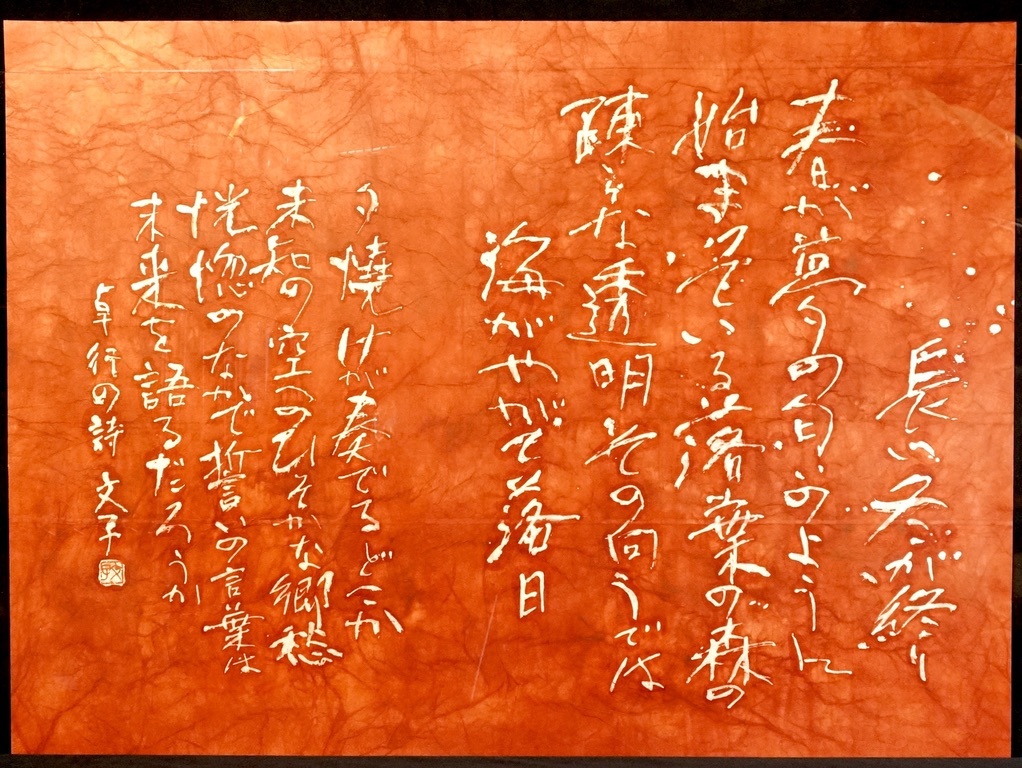 長い冬が終り
春が夢の匂いのように
始まっている落葉の森の
疎らな透明その向うでは
海がやがて落日
夕燒けが奏でるどこか
未知の空へのひそかな郷愁
恍惚のなかで誓いの言葉は
未来を語るだろうか
卓行の詩